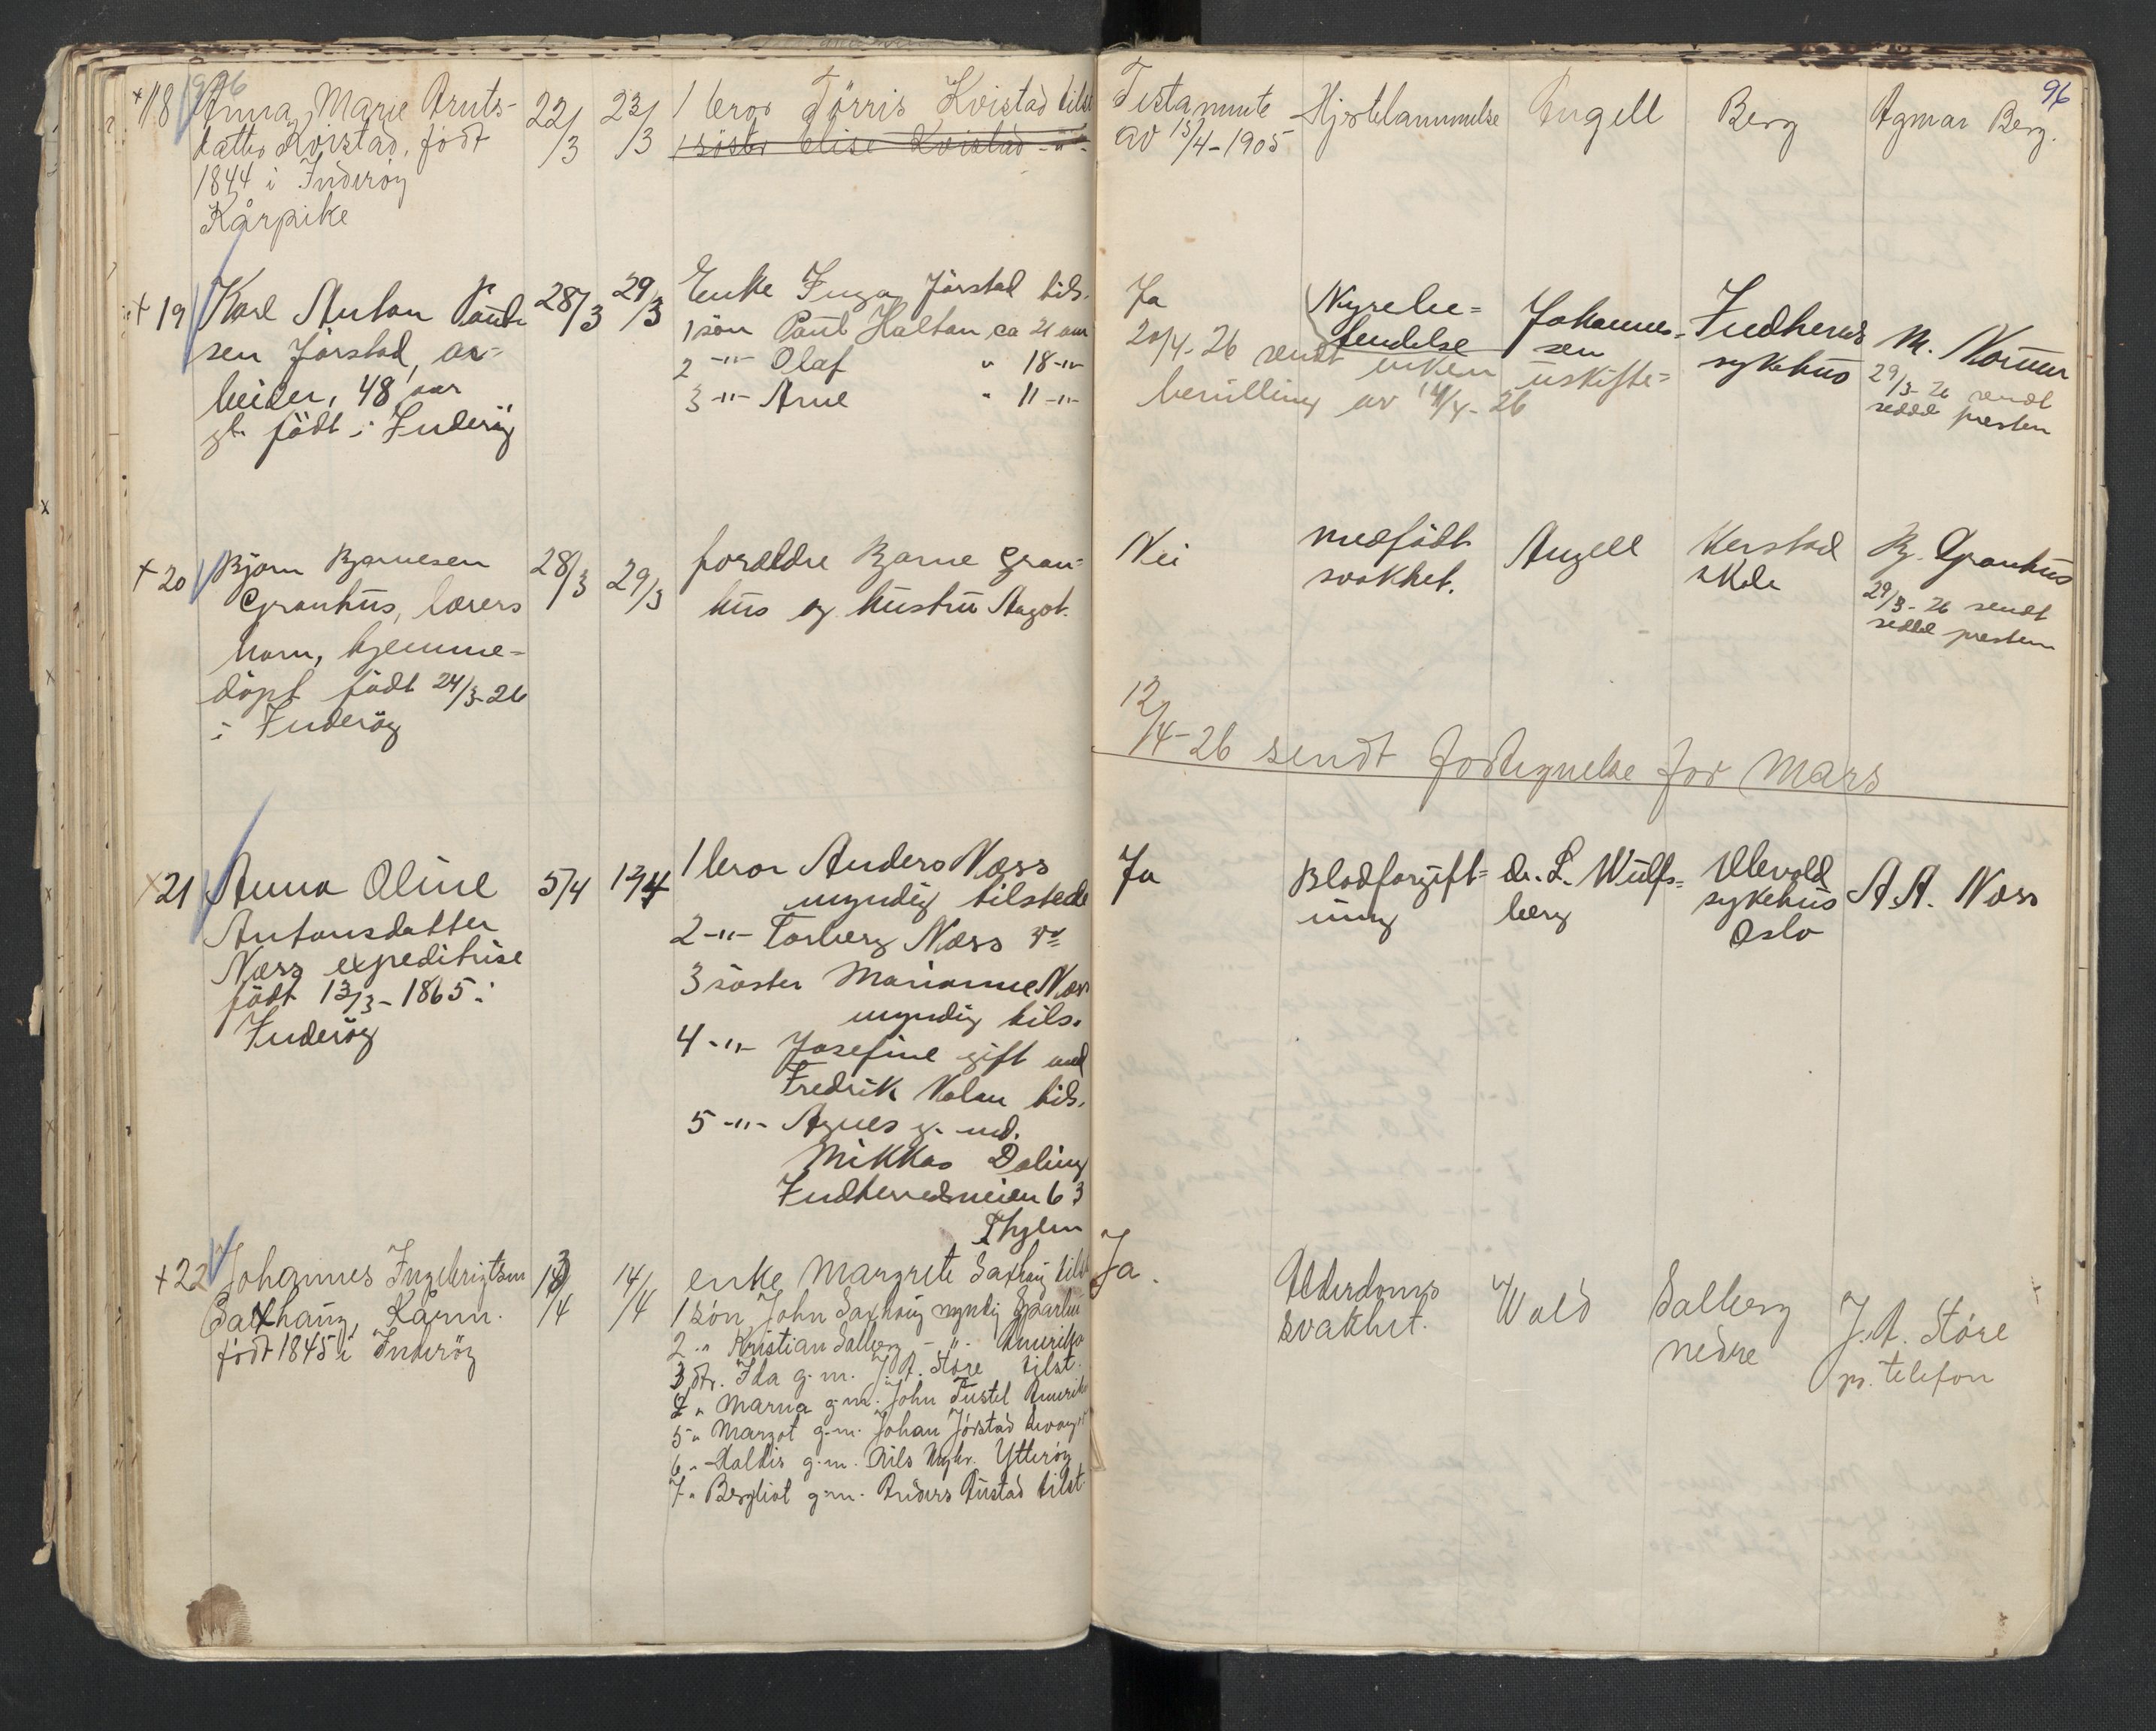 1926
+18 Anna Marie Aruts-
datter Kvistad, født
1844 i Inderøy
Kårpike
22/3
23/3
1 bror Tørris Kvistad tilst
1 søster Elise Kvistad -"-
Testamente
av 15/4-1905
Hjertelammelse
Angell
Berg
Agmar Berg.
96
+19 Karl Anton Paul-
sen Jørstad, ar-
beider, 48 aar
gl. född i Inderöy
28/3
29/3
Enke Inga Jörstad tils.
1 sön Paul Haltan ca 21 aar
2 -"- Olaf " 18 -"-
3 -"- Arne " 11 -"-
Ja
20/4-26 sendt enken uskifte=
bevilling av 14/4-26
Nyrebe=
tendelse
Johannes-
sen
Indherreds
sykehus
M.
29/3-26 sendt
seddel presten
+20 Björn Bjarnesen
Granhus, lærers
barn, hjemme-
döpt född 24/3-26
i Inderöy
28/3
29/3
foreldre Bjarne Gran=
hus og hustru Aagot.
Nei
medfödt
svakhet.
Angell
Kerstad
skole
Bj. Granhus
29/3-26 sendt
seddel presten
12/4-26 sendt fortegnelse for Mars
+21 Anna Oline
Antonsdatter
Næss expeditrise
född 13/3-1865 i
Inderöy
5/4
12/4
1 bror Anders Næss
myndig tilstede
2 -"- Torberg Næss do
3 söster Marianne Næss
myndig tils.
4 -"- Josefine gift med
Fredrik Valan tils.
5 -"- Agnes g. med.
Mikkas Daling
Indherredsveien 63
Thjem
Ja
Blodforgift=
ning
dr. L. Wülfs=
berg
Ullevold
sykehus
Oslo
A. A. Næss
+22 Johannes Ingebrigtsen
Saxhaug, Kårm.
født 1845 i Inderøy
13/4
14/4
enke Margrete Saxhaug tilst
1 søn John Saxhaug myndig Sparbu
2 " Kristian Salberg - " - Amerika
3 dtr. Ida g.m. J. A. Støre tilst.
4 " Marna g.m. John Tustel Amerika
5 " Margot g.m. Johan Jørstad Levanger
6 " Haldis g.m. Nils Ytterøy
7 " Bergliot g.m. Anders Rustad tilst.
Ja.
Alderdoms
svakhet.
Wold
Salberg
nedre
J. A. Støre
pr. telefon